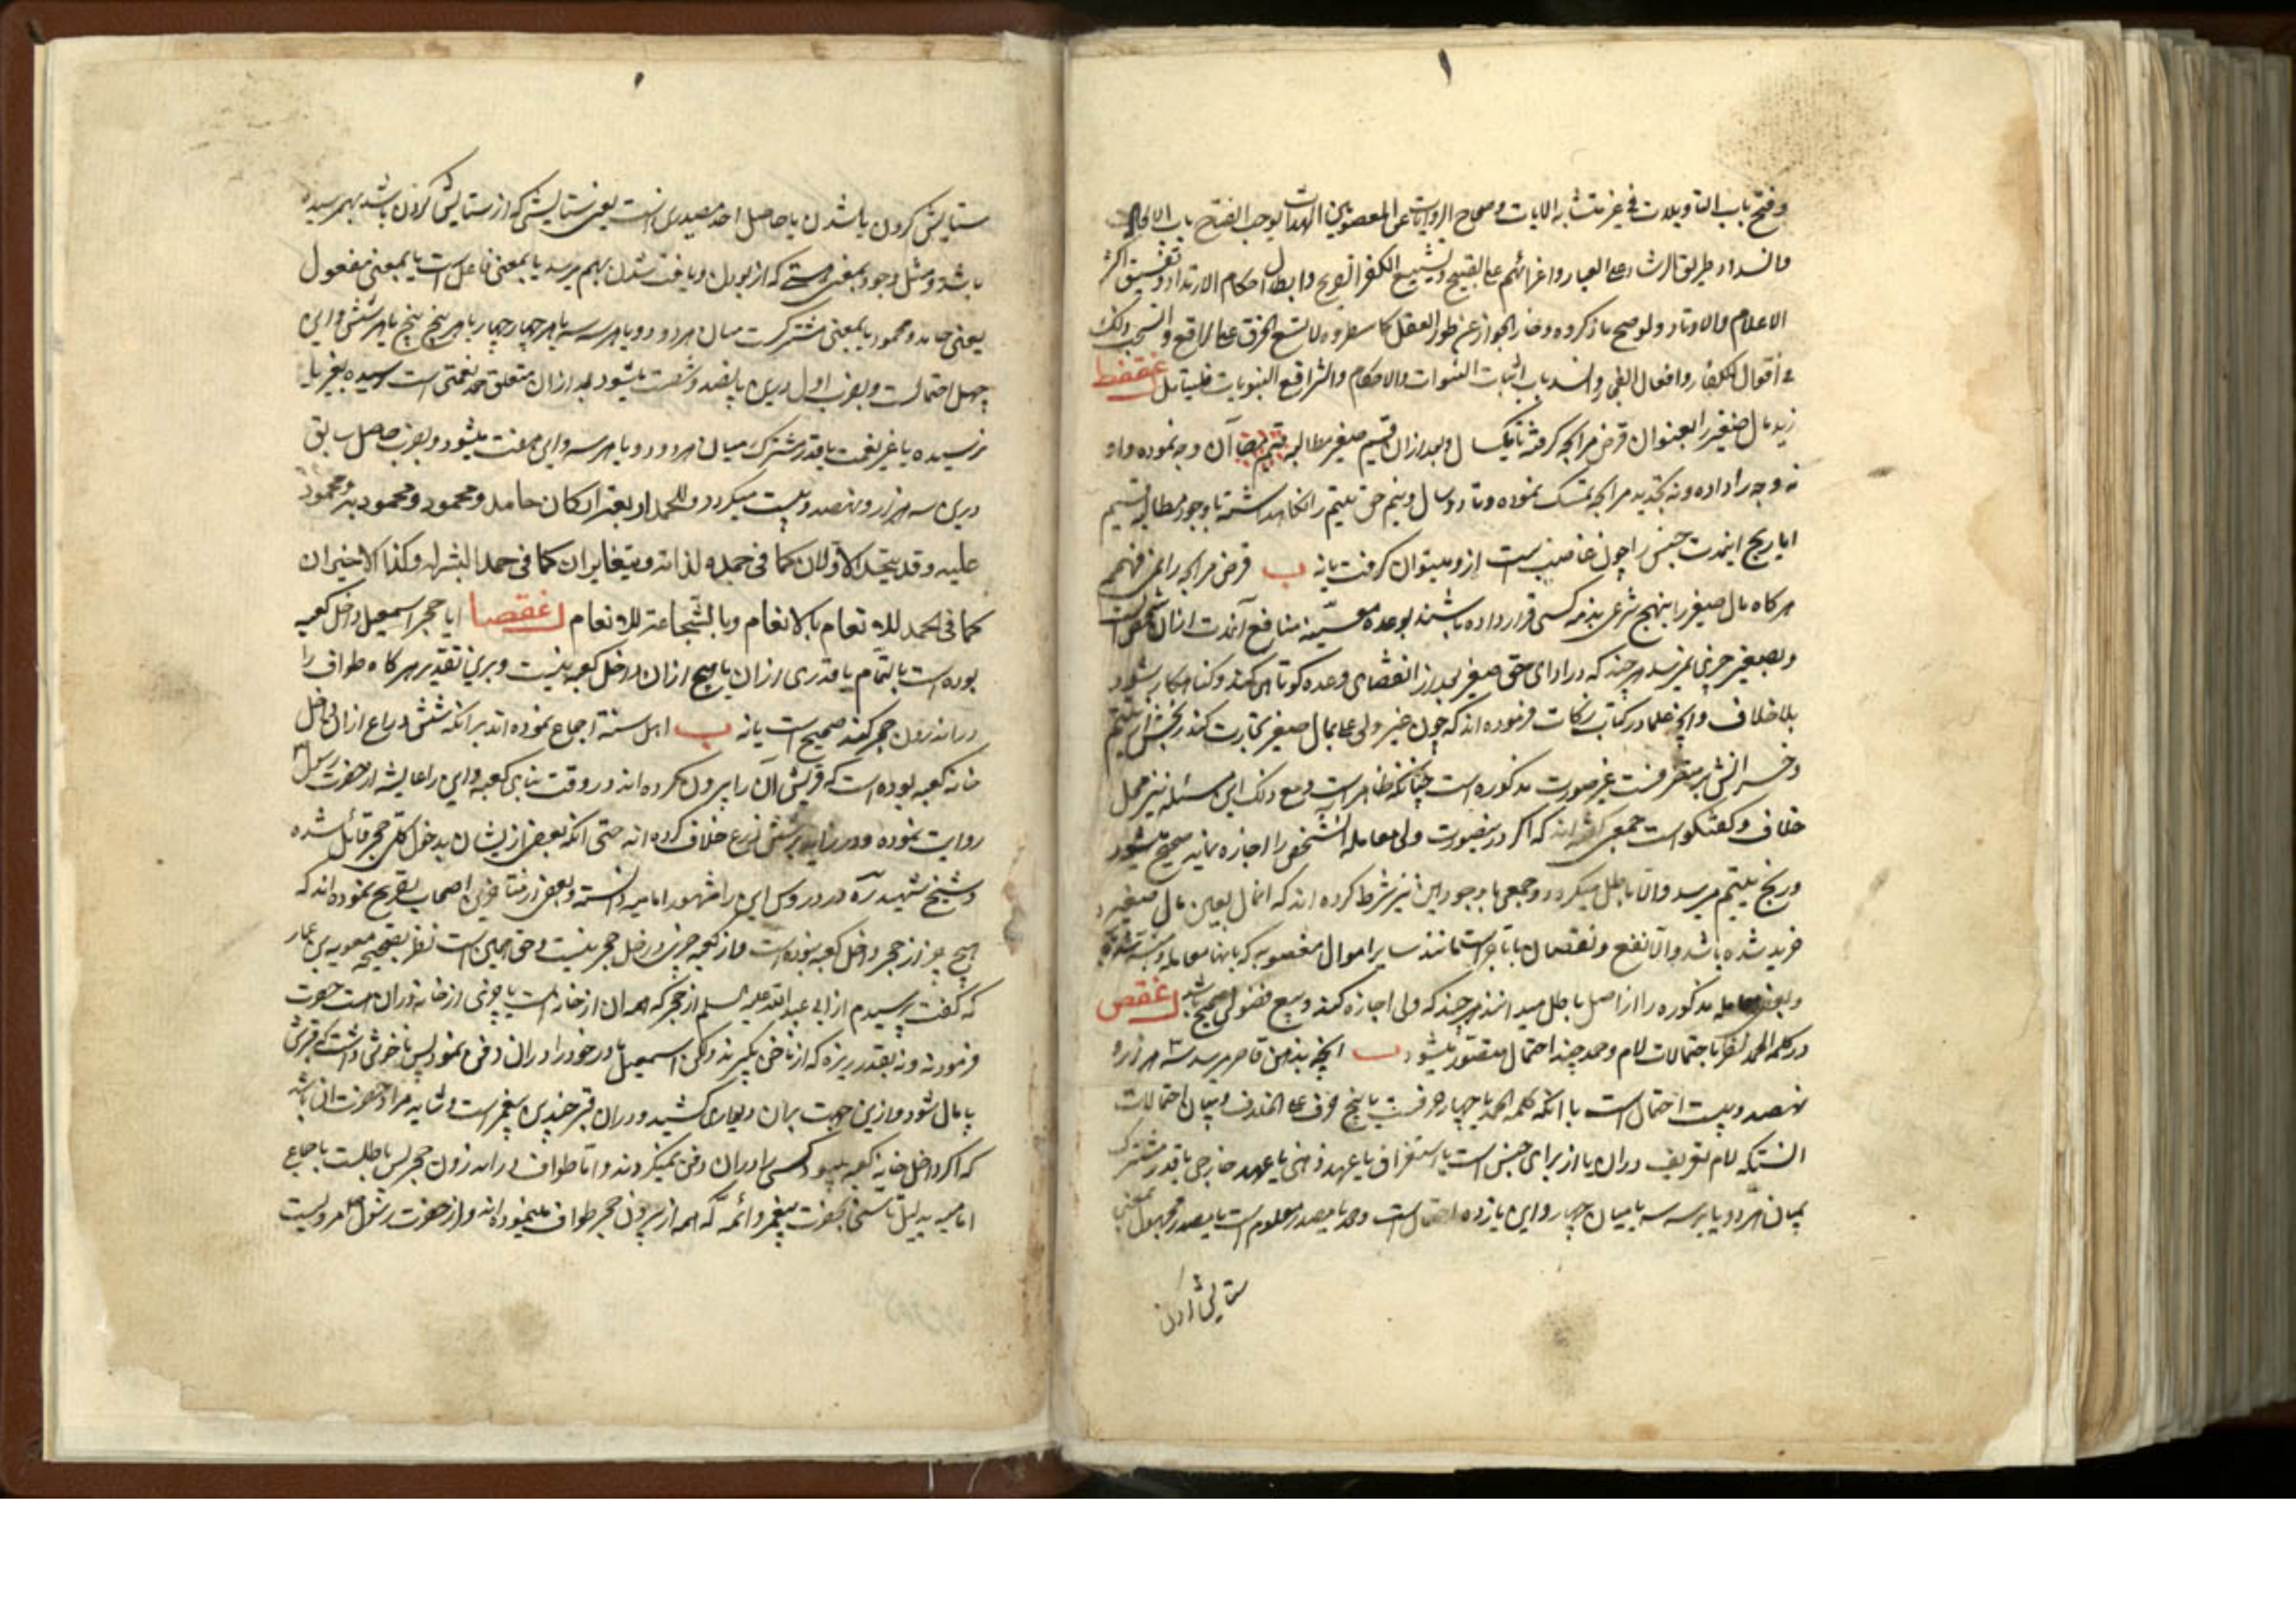 وفتح باب التاویلات فی غیر متشابه الایات وصحاح الروایات عن المعصومین الهداة یوجب انفتاح باب الالحاد
وانسداد طریق الرشاد علی العباد واغرائهم علی القبیح وتشییع الکفر الصریح وابطال احکام الارتداد وتفسیق اکثر
الاعلام والاوتاد ولو صح ما ذکروه وخارالجواز عن طور العقل کما سطروه لاتسع الخرق علی الراقع وانسحب ذلک
فی اقوال الکفار وافعال الغی وانسد باب اثبات النبوات والاحکام والشرائع النبویات فلیتامل غققط
زید مال صغیر را بعنوان قرض مرابحه گرفته تا یک سال و بعد از ان قیم صغیر مطالبه آن وجه نموده و او
نه وجه را داده و نه تجدید مرابحه تمسک نموده و تا دو سال و نیم حق یتیم را نگاهداشته با وجود مطالبه قیم
ایا ربح اینمدت جنس را چون غاصب است از و میتوان گرفت یا نه ب قرض مرابحه را نمی فهمم
هر گاه مال صغیر را بنهج شرعی بذمه کسی قرار داده باشند بوعده معینه منافع آنمدت از ان شخص است
و بصغیر چیزی نمیرسد هر چند که در ادای حق صغیر بعد از انقضای وعده کوتاهی کند و گناهکار شود
بلا خلاف و انچه علما در کتاب زکات فرموده اند که چون غیر ولی بمال صغیر تجارت کند ربحش از یتیم
و خسرانش بر متصرفست غیر صورت مذکوره است چنانکه ظاهر است و مع ذلک این مسئله نیز محل
خلاف و گفتگوست جمعی گفته اند که اگر در ینصورت ولی معامله انشخص را اجازه نماید صحیح میشود
و ربح بیتیم میرسد و الا باطل میگردد و جمعی با وجود این نیز شرط کرده اند که انمال بعین مال صغیر
خرید شده باشد و الا نفع و نقصان با تاجر است مانند سایر اموال مغصوبه که بانها معامله
و بعضی معامله مذکوره را از اصل باطل میدانند هر چند که ولی اجازه کند و بیع فضولی صحیح باشد غقص
در کلمه الحمد نظر باحتمالات لام و حمد چند احتمال متصور میشود ب انچه بذهن قاصر میرسد سه هزار و
نهصد و بیست احتمال است با انکه کلمه الحمد یا چهار حرفست یا پنج حرف علی الخلاف و بیان احتمالات
انستکه لام تعریف در ان یا از برای جنس است یا استغراق یا عهد ذهنی یا عهد خارجی یا قدر مشترک
بمیان هر دو یا هر سه سه یا میان چهار و این یازده احتمال است و حمد یا مصدر معلوم است یا مصدر مجهول بمعنی
ستایش کردن
ستایش کردن یا شدن یا حاصل احد مصدری است یعنی ستایشی که از ستایش کردن یا شدن بهمرسیده
باشد و مثل وجود بمعنی هستی که از بودن و یافت شدن بهم میرسد یا بمعنی فاعل است یا بمعنی مفعول
یعنی حامد و محمود یا بمعنی مشترکست میان هر دو دو یا هر سه سه یا هر چهار چهار یا هر پنج پنج یا هر شش و این
چهل احتمالست و بضرب اول درین پانصد و شصت میشود بعد از ان متعلق حمد نعمتی است رسیده بغیر یا
نرسیده یا غیر نعمت یا قدر مشترک میان هر دو دو یا هر سه و این هفت میشود و بضرب حاصل سابق
درین سه هزار و نهصد و بیست میگردد وللحمد اربعة ارکان حامد ومحمود ومحمود به ومحمود
علیه وقد یتحد الاولان کما فی حمده لذاته ویتغایران کما فی حمد البشر له وکذا الاخیران
کما فی الحمد للانعام بالانعام وبالشجاعة للانعام غقصا ایا حجر اسمعیل داخل کعبه
بوده است بالتمام یا قدری از ان یا هیچ از ان داخل کعبه نیست و برین تقدیر هر گاه طواف را
در اندرون حجر کند صحیح است یا نه ب اهل سنة اجماع نموده اند بر انکه شش ذراع از ان داخل
خانه کعبه بوده است که قریش آن را بیرون کرده اند در وقت بنای کعبه و این را عایشه از حضرت رسول
روایت نموده و در زاید بر شش ذرع خلاف کرده اند حتی انکه بعضی از یشان بدخول کل حجر قائل شده
و شیخ شهید ره در دروس این را مشهور امامیه دانسته و بعضی از متاخرین اصحاب تصریح نموده اند که
هیچ چیز از حجر داخل کعبه نبوده است و از کعبه چیزی در خل حجر نیست و حق همین است نظر بصحیحه معویه بن عمار
که گفت پرسیدم از ابی عبد الله علیه السلم از حجر که همه ان از خانه است یا چیزی از خانه در ان است حضرت
فرمود نه و نه بقدر ریزه که از ناخن بگیرند ولکن اسمعیل مادر خود را در ان دفن نمود پس ناخوش داشت که قبرش
پامال شود و ازین جهت بران دیواری کشید و در ان قبر چندین پیغمبر است و شاید مراد حضرت ان باشد
که اگر داخل خانه کعبه میبود کسی را در ان دفن نمیکردند و اما طواف در اندرون حجر پس باطلست باجماع
امامیه بدلیل تاسی بحضرت پیغمبر و ائمه که همه از بیرون حجر طواف مینموده اند و از حضرت رسول مرویست